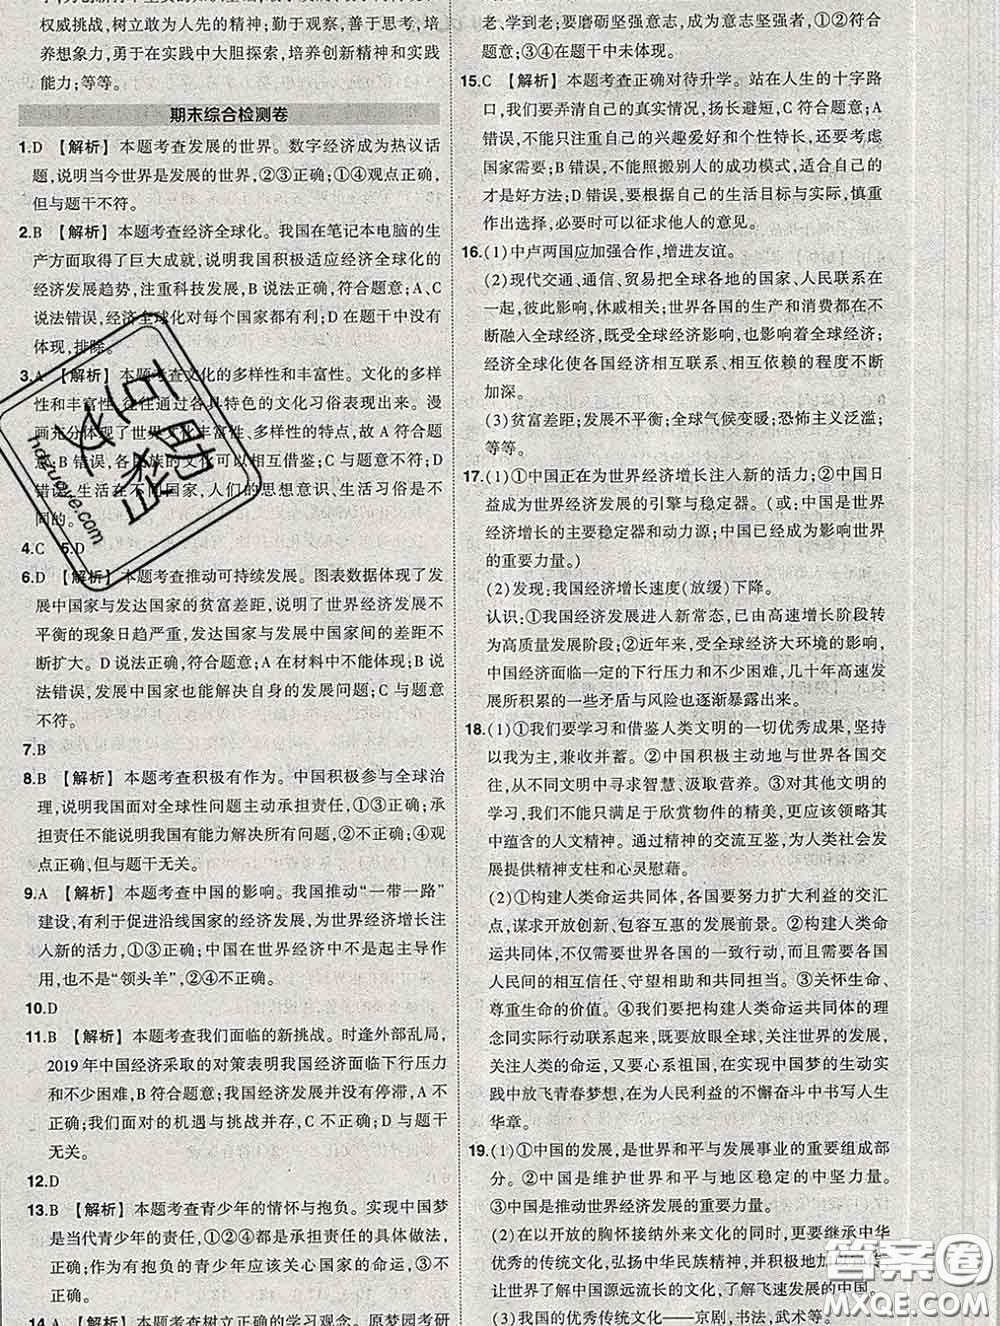 权威挑战,树立敢为人先的精神;勤于观察,善于思考,培
养想象力,勇于在实践中大胆探索,培养创新精神和实践
能力;等等。
期末综合检测卷
1.D 【解析】本题考查发展的世界。数字经济成为热议话
题,说明当今世界是发展的世界,②③正确;①④观点正确,
但与题干不符。
2.B 【解析】本题考查经济全球化。我国在笔记本电脑的生
产方面取得了巨大成就,说明我国积极适应经济全球化的
经济发展趋势,注重科技发展,B 说法正确,符合题意;A、C
说法错误,经济全球化对每个国家都有利;D 在题干中没有
体现,排除。
3.A 【解析】本题考查文化的多样性和丰富性。文化的多样
性和丰富性,往往通过各具特色的文化习俗表现出来。漫
画充分体现了世界文化丰富性、多样性的特点,故 A 符合题
意;B 错误,各民族的文化可以相互借鉴;C 与题意不符;D
错误,生活在不同国家,人们的思想意识、生活习俗是不
同的。
4.C 5.D
6.D 【解析】本题考查推动可持续发展。图表数据体现了发
展中国家与发达国家的贫富差距,说明了世界经济发展不
平衡的现象日趋严重,发达国家与发展中国家间的差距不
断扩大。D 说法正确,符合题意;A 在材料中不能体现;B 说
法错误,发展中国家也能解决自身的发展问题;C 与题意
不符。
7.B
8.B 【解析】本题考查积极有作为。中国积极参与全球治
理,说明我国面对全球性问题主动承担责任,①③正确;承
担责任不能说明我国有能力解决所有问题,②不正确;④观
点正确,但与题干无关。
9.A 【解析】本题考查中国的影响。我国推动“一带一路”
建设,有利于促进沿线国家的经济发展,为世界经济增长注
入新的活力,①③正确;中国在世界经济中不是起主导作
用,也不是“领头羊”,②④不正确。
10.D
11.B 【解析】本题考查我们面临的新挑战。时逢外部乱局,
2019 年中国经济采取的对策表明我国经济面临下行压力
和不少困难,B 符合题意;我国经济发展并没有停滞,A 不
正确;我们面对的机遇与挑战并存,C 不正确;D 与题干
无关。
12.D
13.B 【解析】本题考查青少年的情怀与抱负。实现中国梦
是当代青少年的责任,①②④都是承担责任的具体做法,
正确;作为有抱负的青少年应该关心国家的命运,③不
符合。
14.A 【解析】本题考查树立正确的学习观念。原梦园考研
老,学到老;要磨砺坚强意志,成为意志坚定的人,①②符合
题意;③④在题干中未体现。
15.C 【解析】本题考查正确对待升学。站在人生的十字路
口,我们要弄清自己的真实情况,扬长避短,C 符合题意;A
错误,不能只考虑自己的兴趣爱好和个性特长,还要考虑
国家需要;B 错误,不能照搬别人的成功模式,适合自己的
才是好方法;D 错误,要根据自己的生活目标与实际,慎重
作出选择,必要时可以征求他人的意见。
16.(1)中卢两国应加强合作,增进友谊。
(2)现代交通、通信、贸易把全球各地的国家、人民联系在
一起,彼此影响,休戚相关;世界各国的生产和消费都在不
断融入全球经济,既受全球经济影响,也影响全球经济;
经济全球化使各国经济相互联系、相互依赖的程度不断
加深。
(3)贫富差距;发展不平衡;全球气候变暖;恐怖主义泛滥;
等等。
17.(1)①中国正在为世界经济增长注入新的活力;②中国日
益成为世界经济发展的引擎与稳定器。(或:中国是世界
经济增长的主要稳定器和动力源;中国已经成为影响世界
的重要力量。)
(2)发现:我国经济增长速度(放缓)下降。
认识:①我国经济发展进入新常态,已由高速增长阶段转
为高质量发展阶段;②近年来,受全球经济大环境的影响,
中国经济面临一定的下行压力和不少困难,几十年高速发
展所积累的一些矛盾与风险也逐渐暴露出来。
18.(1)①我们要学习和借鉴人类文明的一切优秀成果,坚持
以我为主、兼收并蓄。②中国积极主动地与世界各国交
往,从不同文明中寻求智慧、汲取营养。③对其他文明的
学习,我们不能只满足于欣赏物件的精美,更应该领略其
中蕴含的人文精神。通过精神的交流互鉴,为人类社会发
展提供精神支柱和心灵慰藉。
(2)①构建人类命运共同体,各国要努力扩大利益的交汇
点,谋求开放创新、包容互惠的发展前景。②构建人类命
运共同体,不仅需要世界各国的一致行动,更需要各国
人民间的相互信任、守望相助和共同担当。③关怀生命、
尊重生命的价值。④我们要把构建人类命运共同体的理
念同实际行动联系起来,放眼全球、关注世界的发展,
关注人类的命运;心系祖国,在实现中国梦的生动实
践中放飞青春梦想,在为人民利益的不懈奋斗中书写人生
华章。
19.(1)①中国的发展,是世界和平与发展事业的重要组成部
分。②中国是维护世界和平与地区稳定的中坚力量。
③中国是推动世界经济发展的重要力量。
(2)在以开放的胸怀接纳外来文化的同时,更要继承中华
优秀的传统文化,弘扬中华民族精神,并积极地加以传播,
让世界了解中国源远流长的文化,了解飞速发展的中国。
(3)我国的优秀传统文化——京剧,书法,武术等。
百助文库
hdzuoye.com
答案圈
MXQE.COM